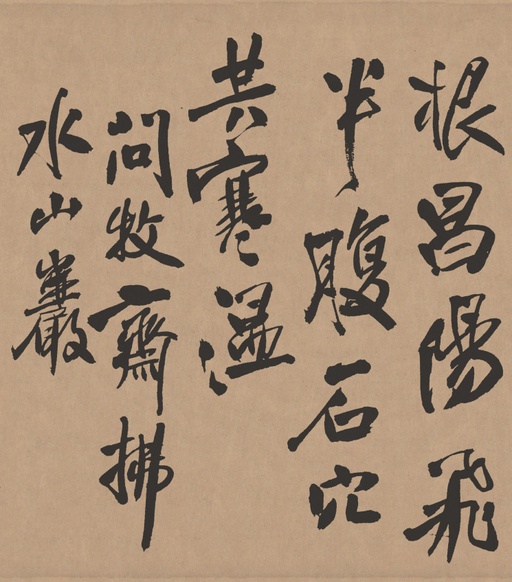 根昌陽飛
半腹石穴
共寒温
問牧齋拂
水山巖